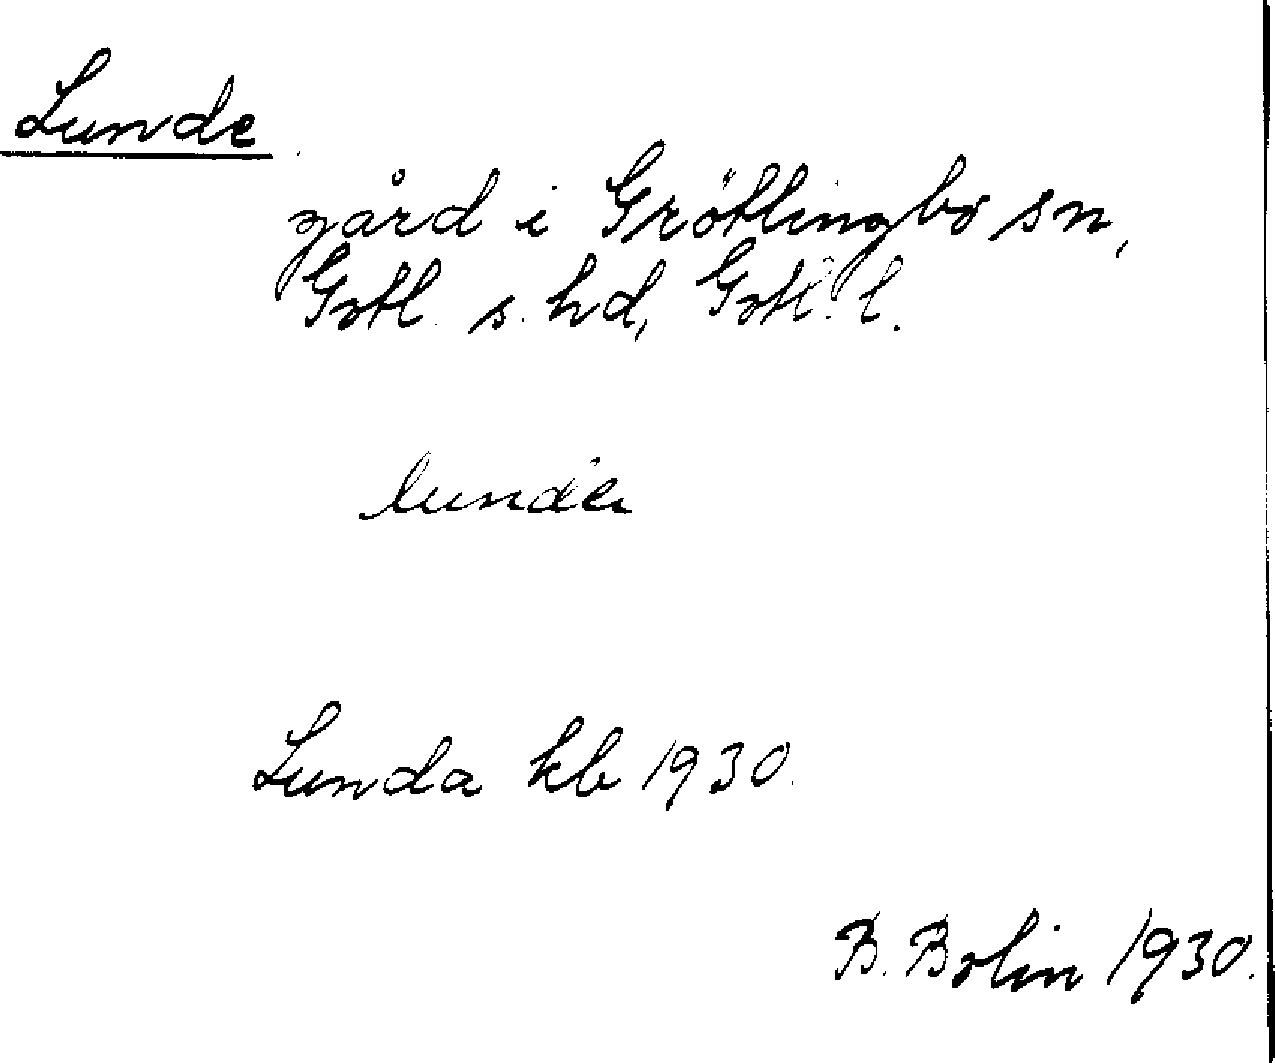 Lunde
gård i Grötlingbo sn,
Gotl. s. hd, Gotl. l.
Lunda kb 1930.
B. Bolin 1930.